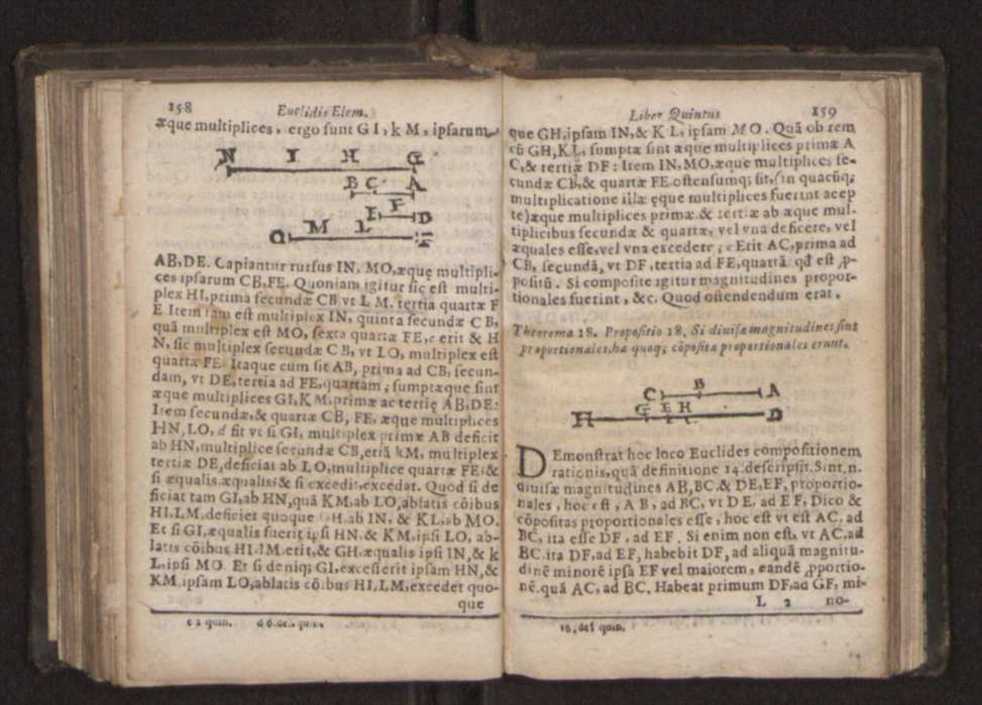 158 Euclidis Elem.
æque multiplices, ergo sunt G I, k M, ipsarum
N I H G
B C A
E F D
O M L F
AB, DE. Capiantur rursus IN, MO, æque multipli-
ces ipsarum CB, FE. Quoniam igitur sic est multi-
plex HI, prima secundæ CB vt L M, tertia quartæ F
E Item iam est multiplex IN, quinta secundæ C B,
quã multiplex est MO, sexta quartæ FE, c erit & H
N, sic multiplex secundæ C B, vt LO, multiplex est
quartæ FE. Itaque cum sit AB, prima ad CB, secun-
dam, vt DE, tertia ad FE, quartam; sumptæque sint
æque multiplices GI, K M, primæ ac tertię AB, DE:
Item secundæ, & quartæ CB, FE, æque multiplices
HN, LO, d fit vt si GI, multiplex primæ AB deficit
ab HN, multiplice secundæ CB, etiã kM, multiplex
tertiæ DE, deficiat ab LO, multiplice quartæ FE; &
si æqualis, æqualis; & si excedit, excedat. Quod si de
ficiat tam GI, ab HN, quã KM, ab LO, ablatis cõibus
HI, LM, deficiet quoque GH, ab IN, & KL, ab MO.
Et si GI, æqualis fuerit ipsi HN, & KM, ipsi LO, ab-
latis cõibus HI, LM, erit, & GH, æqualis ipsi IN, & k
L, ipsi MO. Et si deniq; GI, excesserit ipsam HN, &
KM, ipsam LO, ablatis cõibus HI, LM, excedet quo-
que
c 2 quin. d 6. def. quin.
Liber Quintus 159
que GH, ipsam IN, & K L, ipsam MO. Quã ob rem
cũ GH, KL, sumptæ sint æque multiplices primæ A
C, & tertiæ DF: Item IN, MO, æque multiplices se-
cundæ CB, & quartæ FE ostensumq; sit, (in quacũq;
multiplicatione illæ ęque multiplices fuerint acep
te) æque multiplices primæ, & tertiæ ab æque mul-
tiplicibus secundæ & quartæ, vel vna deficere, vel
æquales esse, vel vna excedere; e Erit AC, prima ad
CB, secundã, vt DF, tertia ad FE, quartã qd est ꝓ-
positũ. Si composite igitur magnitudines propor-
tionales fuerint, &c. Quod ostendendum erat.
Theorema 18. Propositio 18, Si diuisæ magnitudines sint
proportionales, hæ quoq; cõposita proportionales erunt.
C B A
H G E H D
DEmonstrat hoc loco Euclides compositionem
rationis, quã definitione 14 descripsit. Sint, n.
diuisæ magnitudines AB, BC, & DE, EF, proportio-
nales, hoc est, A B, ad BC, vt D E, ad E F; Dico &
cõpositas proportionales esse, hoc est vt est AC, ad
BC, ita esse DF, ad EF. Si enim non est, vt AC, ad
BC, ita DF, ad EF, habebit DF, ad aliquã magnitu-
dinẽ minorẽ ipsa EF vel maiorem, eandẽ ꝓportio-
nẽ, quã AC, ad BC. Habeat primum DF, ad GF, mi-
L 2 no-
16. def quin.